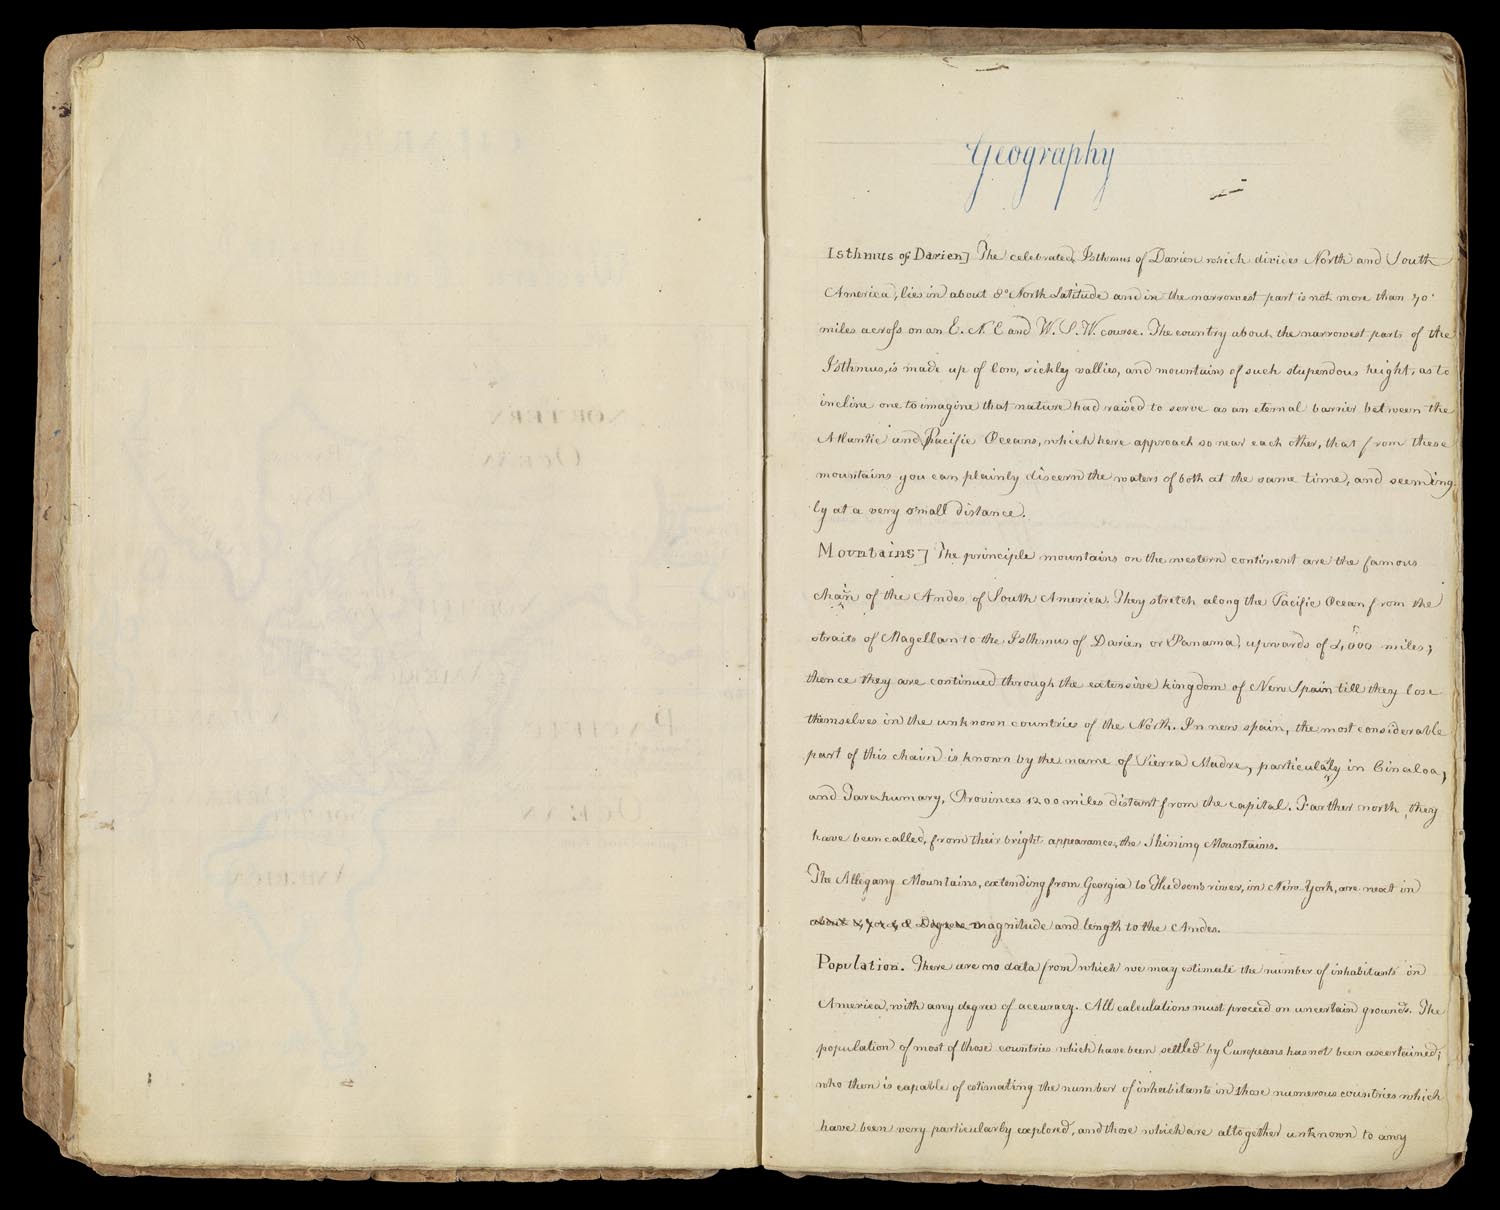 Geography
Isthmus of Darien] The celebrated Isthmus of Darien which divides North and South
America, lies in about 8° North Latitude and in the narrowest part is not more than 70
miles across on an E. N. E and W. S. W. course. The country about the narrowest parts of the
Isthmus, is made up of low, sickly vallies, and mountains of such stupendous height, as to
incline one to imagine that nature had raised to serve as an eternal barrier between the
Atlantic and Pacific Oceans, which here approach so near each other, that from these
mountains you can plainly discern the waters of both at the same time, and seeming
ly at a very small distance.
Mountains] The principle mountains on the western continent are the famous
chain of the Andes of South America. They stretch along the Pacific Ocean from the
straits of Magellan to the Isthmus of Darien or Panama, upwards of 4,000 miles;
thence they are continued through the extensive kingdom of New Spain till they lose
themselves in the unknown countries of the North. In new spain, the most considerable
part of this chain is known by the name of Sierra Madre, particularly in Cinaloa,
and Tarahumary, Provinces 1200 miles distant from the capital. Farther north, they
have been called, from their bright appearance, the Shining Mountains.
The Allegany Mountains, extending from Georgia to Hudson's river, in New York, are next in
magnitude and length to the Andes.
Population. There are no data from which we may estimate the number of inhabitants in
America, with any degree of accuracy. All calculations must proceed on uncertain grounds. The
population of most of those countries which have been settled by Europeans has not been ascertained;
who then is capable of estimating the number of inhabitants in those numerous countries which
have been very particularly explored, and those which are altogether unknown to any
NORTERN
OCEAN
NORTH
AMERICA
PACIFIC
OCEAN
SOUTH
AMERICA